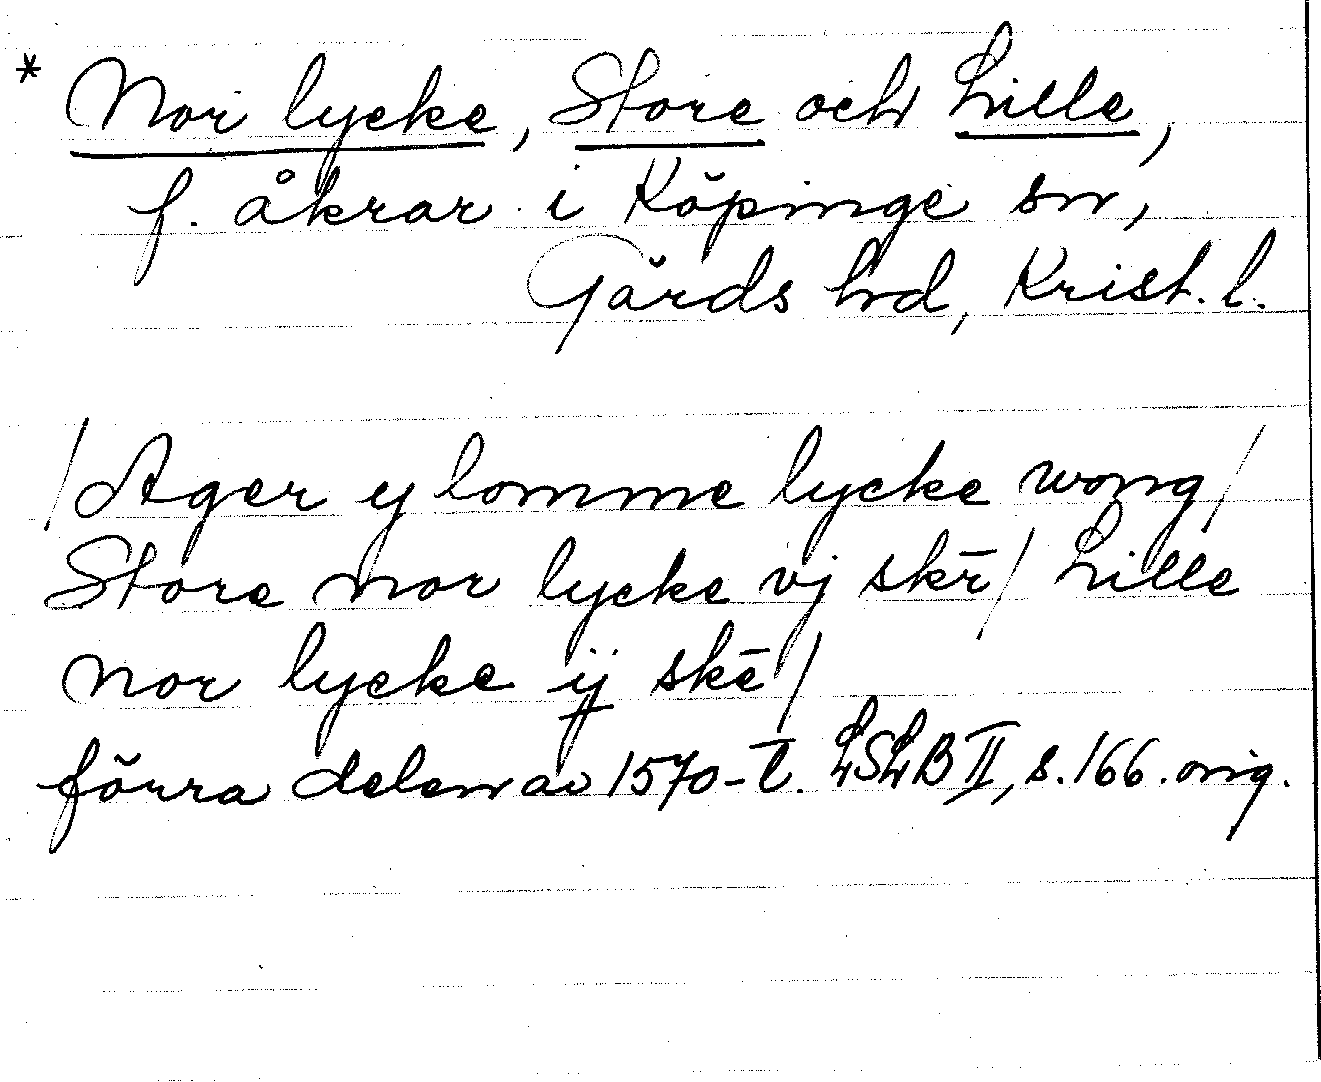 * Nor lycke, Store och Lille,
f. åkrar i Köpinge sn,
Gärds hd, Krist. l.
/Ager y lomme lycke wong/
Store nor lycke vj skē/ Lille
nor lycke ij skē/
förra delen av 1570-t. LSLB II, s. 166. orig.